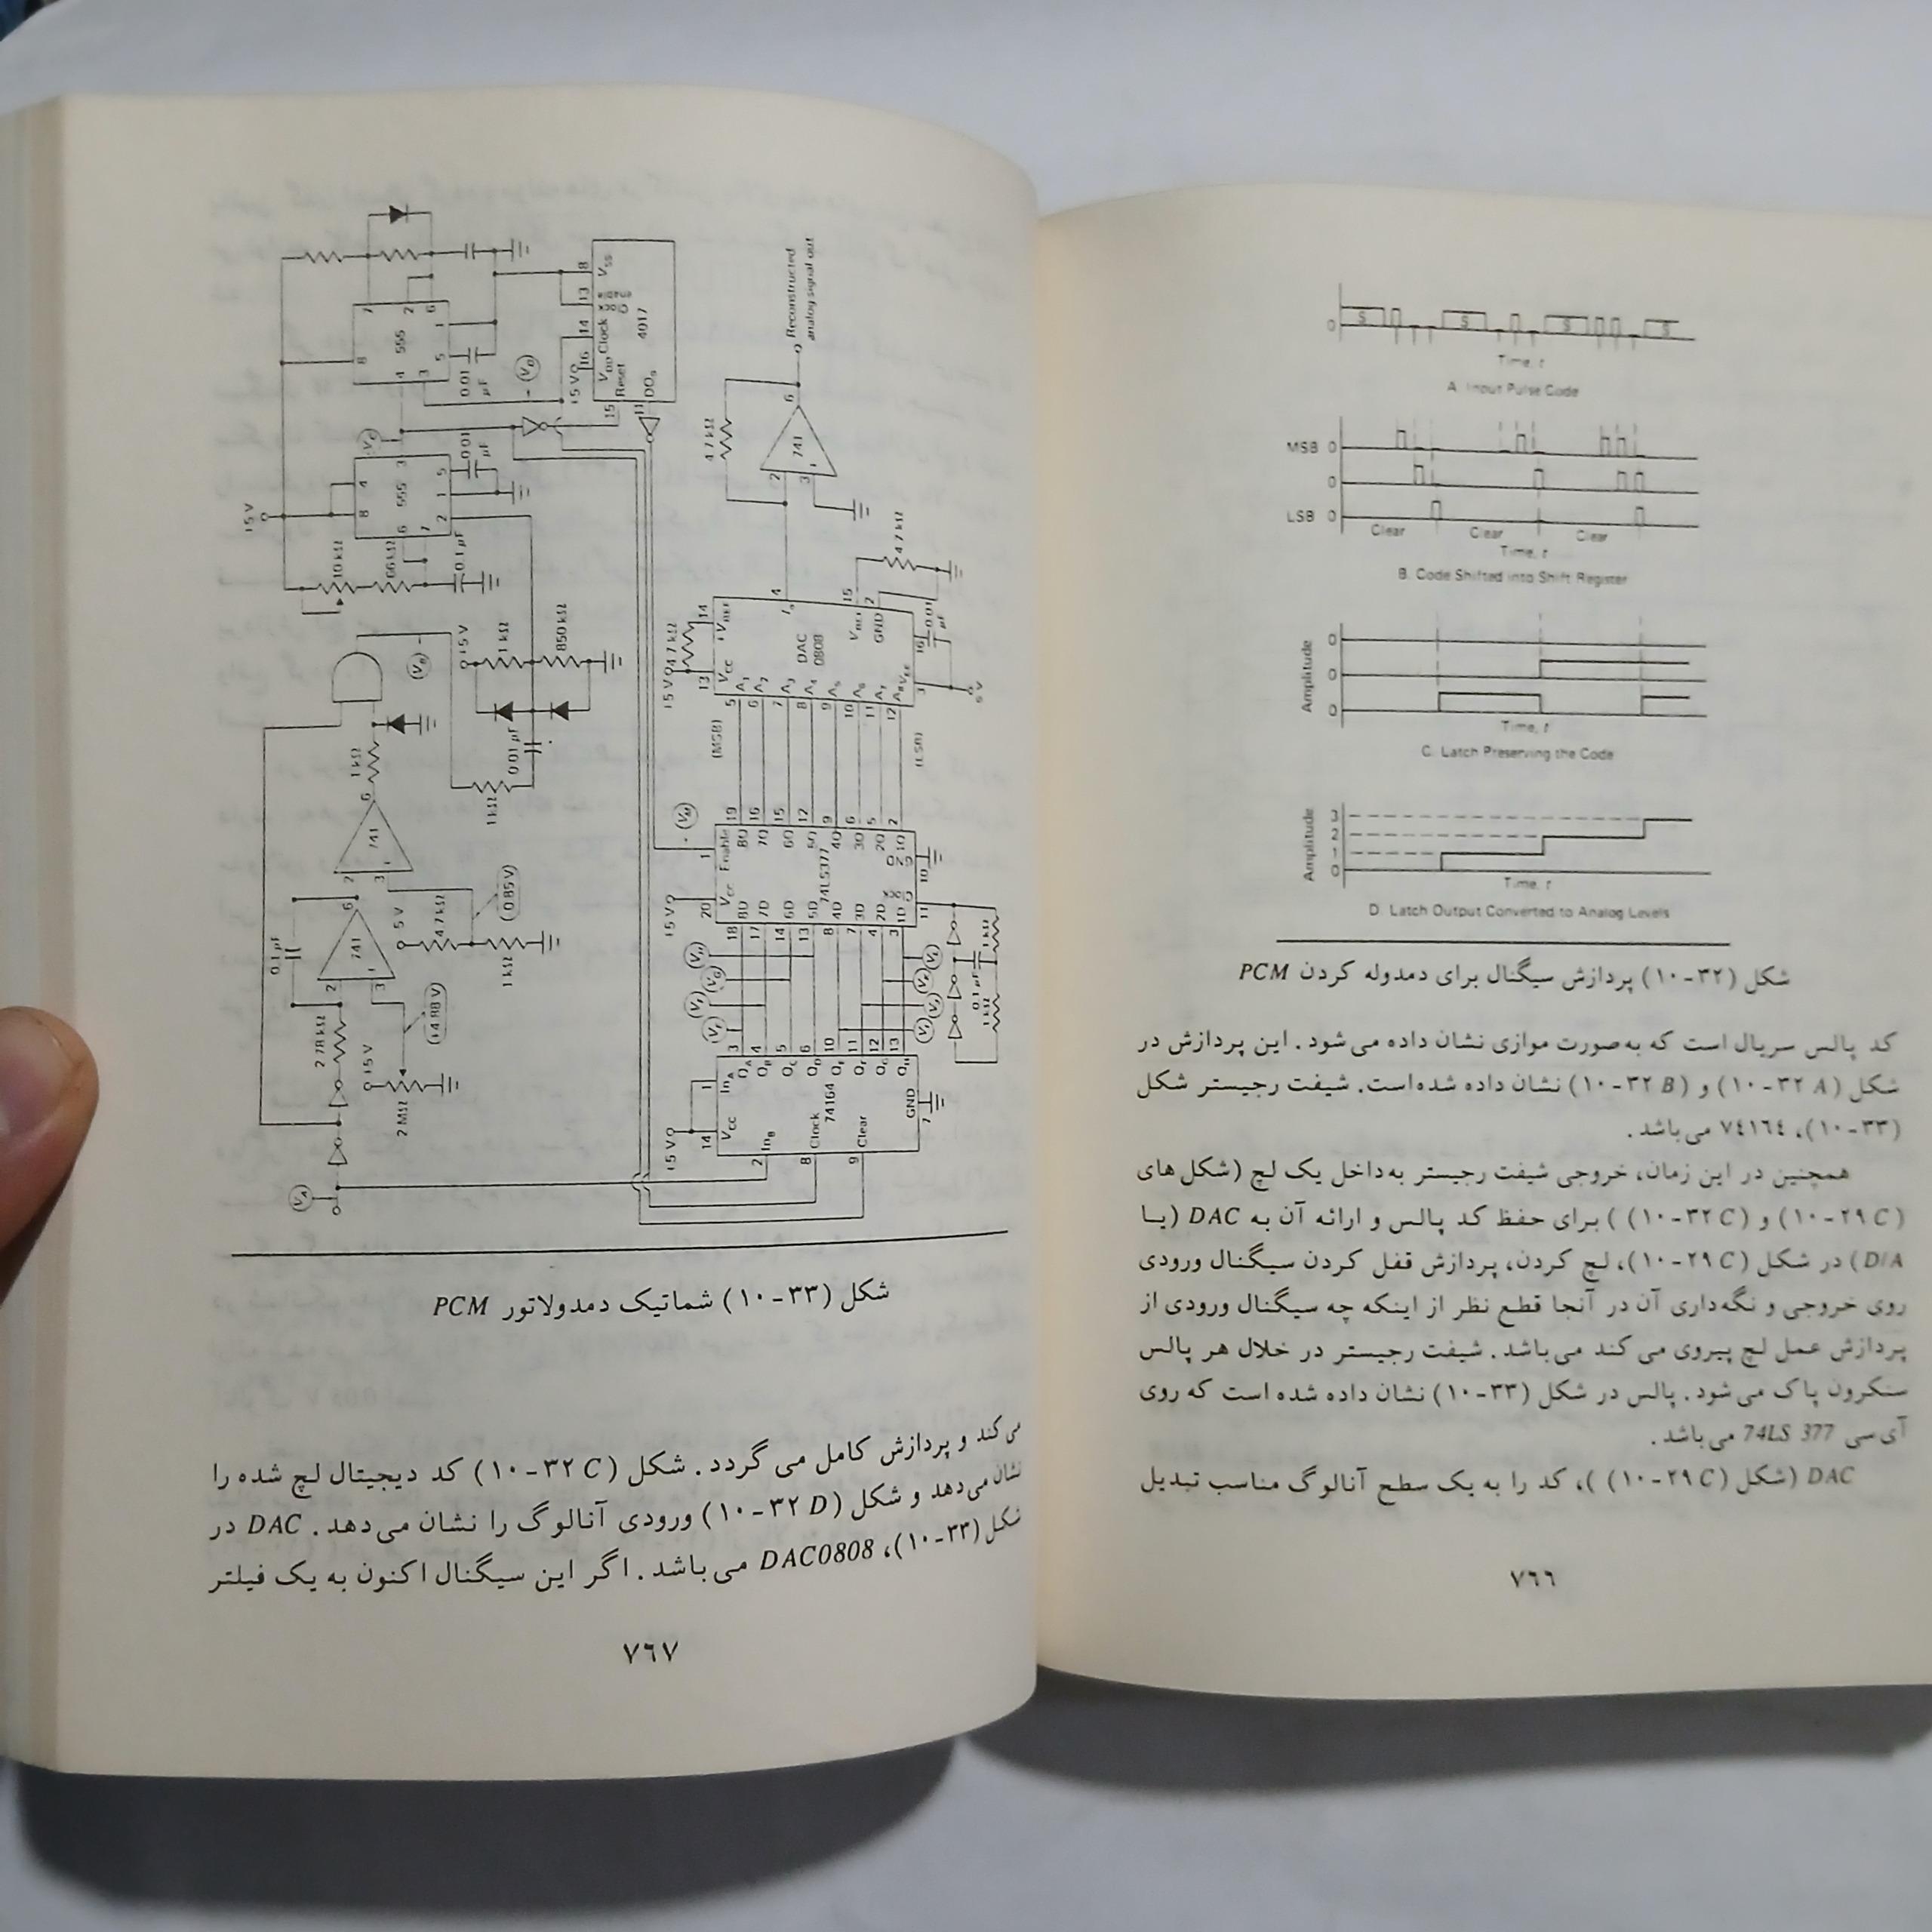 Time, t
A. Input Pulse Code
MSB 0
0
LSB 0
Clear Clear Clear
Time, t
B. Code Shifted into Shift Register
Amplitude
0
0
0
Time, t
C. Latch Preserving the Code
Amplitude
3
2
1
0
Time, t
D. Latch Output Converted to Analog Levels
شکل (۳۲-۱۰) پردازش سیگنال برای دمدوله کردن PCM
کد پالس سریال است که به‌صورت موازی نشان داده می‌شود. این پردازش در
شکل (۳۲A-۱۰) و (۳۲B-۱۰) نشان داده شده‌است. شیفت رجیستر شکل
(۳۳-۱۰)، ۷۴۱۶۴ می‌باشد.
همچنین در این زمان، خروجی شیفت رجیستر به‌داخل یک لچ (شکل‌های
(۲۹C-۱۰) و (۳۲C-۱۰) ) برای حفظ کد پالس و ارائه آن به DAC (یا
D/A) در شکل (۲۹C-۱۰)، لچ کردن، پردازش قفل کردن سیگنال ورودی
روی خروجی و نگه‌داری آن در آنجا قطع نظر از اینکه چه سیگنال ورودی از
پردازش عمل لچ پیروی می کند می‌باشد. شیفت رجیستر در خلال هر پالس
سنکرون پاک می‌شود. پالس در شکل (۳۳-۱۰) نشان داده شده است که روی
آی‌سی 74LS 377 می‌باشد.
DAC (شکل (۲۹C-۱۰) )، کد را به یک سطح آنالوگ مناسب تبدیل
۷۶۶
+5 V
555
555
0.01 µF
0.01 µF
10 kΩ
66 kΩ
0.1 µF
4017
Reset
Clock
741
1 kΩ
+5 V
1 kΩ
850 kΩ
0.01 µF
1 kΩ
0.1 µF
741
2.78 kΩ
2 MΩ
+5 V
(+4.88 V)
5 V
4.7 kΩ
1 kΩ
(0.85 V)
Reconstructed
analog signal out
741
4.7 kΩ
4.7 kΩ
DAC
0808
GND
(MSB)
(LSB)
Enable
74LS377
74164
Clock
Clear
GND
0.1 µF
1 kΩ
1 kΩ
شکل (۳۳-۱۰) شماتیک دمدولاتور PCM
می‌کند و پردازش کامل می گردد. شکل (۳۲C-۱۰) کد دیجیتال لچ شده را
نشان می‌دهد و شکل (۳۲D-۱۰) ورودی آنالوگ را نشان می‌دهد. DAC در
شکل (۳۳-۱۰)، DAC0808 می‌باشد. اگر این سیگنال اکنون به یک فیلتر
۷۶۷